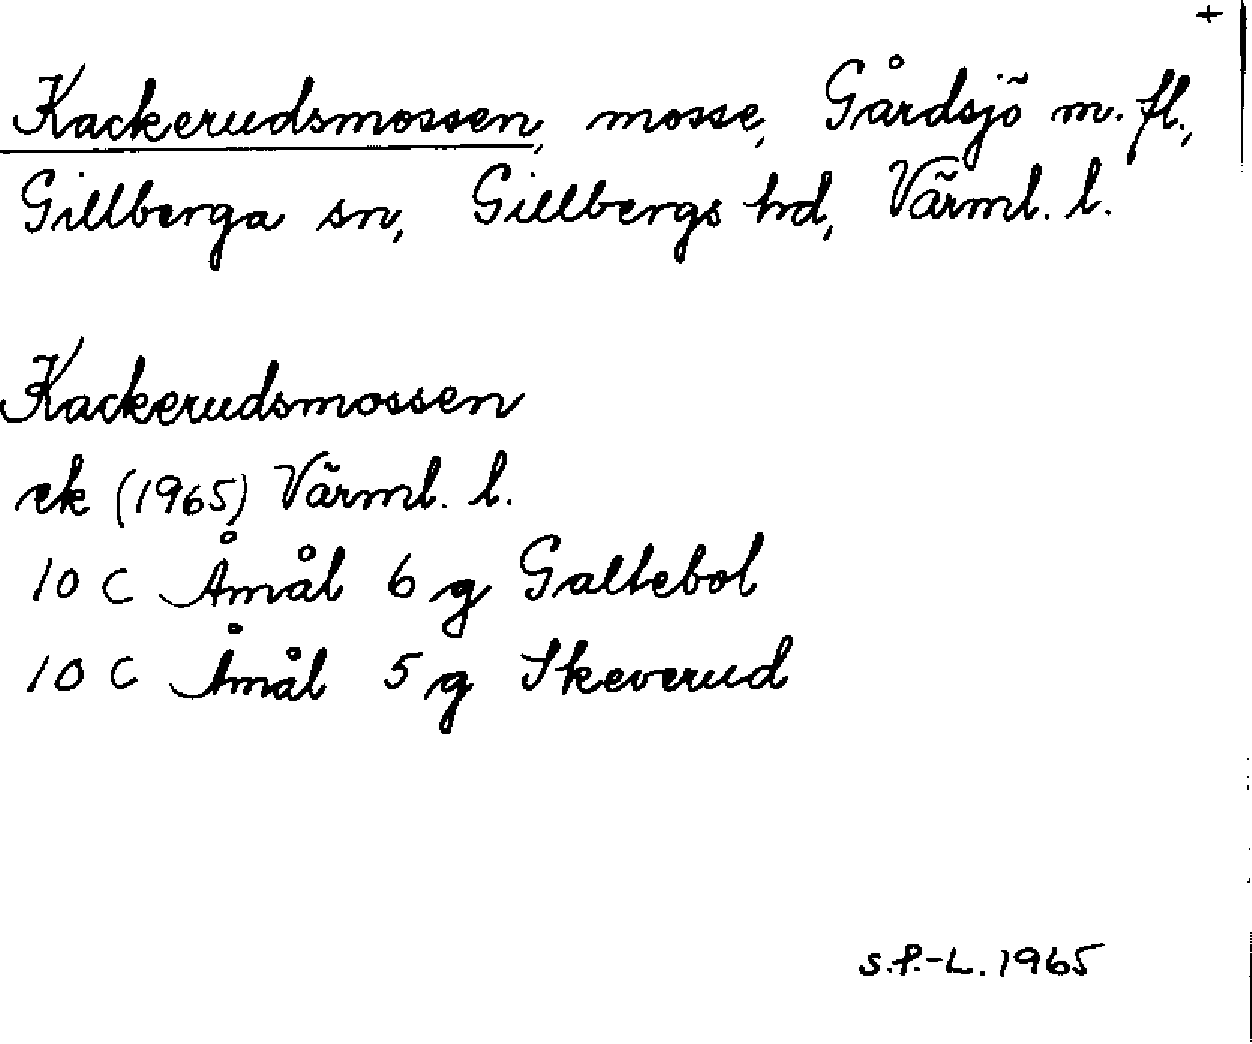 +
Kackerudsmossen, mosse, Gårdsjö m. fl.,
Gillberga sn, Gillbergs hd, Värml. l.
Kackerudsmossen
ek (1965) Värml. l.
10 C Åmål 6 g Galtebol
10 C Åmål 5 g Skeverud
S.P.-L. 1965